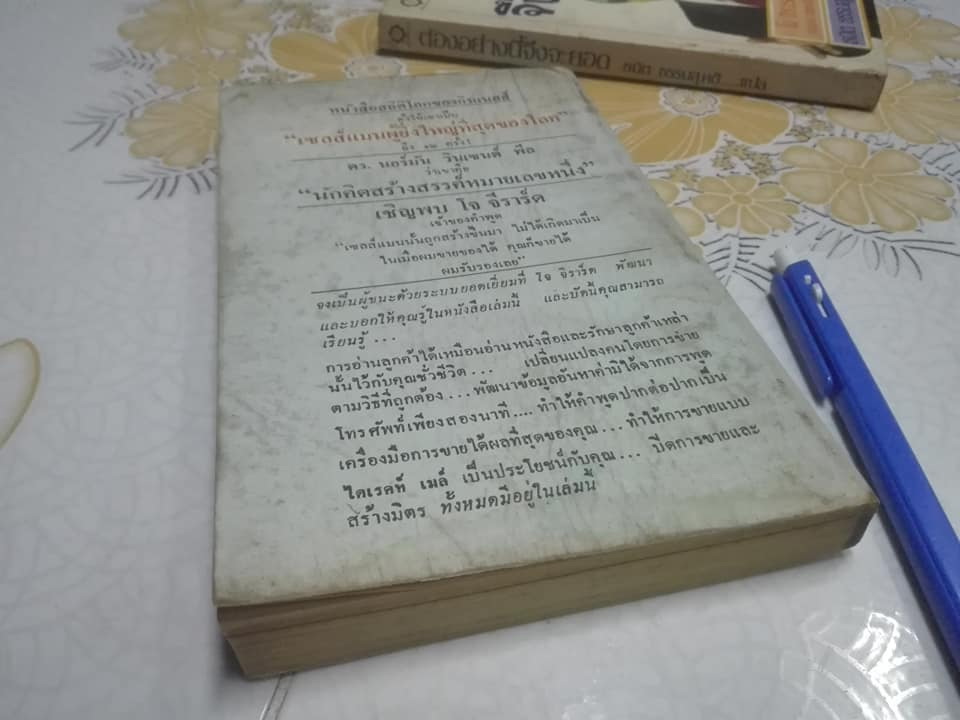 ต้องอย่างนี้จึงจะยอด
หนังสือสถิติโลกของกินเนสส์
"เซลส์แมนผู้ยิ่งใหญ่ที่สุดของโลก"
ถึง ๑๒ ครั้ง
ดร. นอร์มัน วินเซนต์ พีล
ว่าเขาคือ
"นักคิดสร้างสรรค์หมายเลขหนึ่ง"
เชิญพบ โจ จีราร์ด
เจ้าของคำพูด
"เซลส์แมนนั้นถูกสร้างขึ้นมา ไม่ได้เกิดมาเป็น
ในเมื่อผมขายของได้ คุณก็ขายได้
ผมรับรองเลย"
จงเป็นผู้ชนะด้วยระบบยอดเยี่ยมที่ โจ จิราร์ด พัฒนา
และบอกให้คุณรู้ในหนังสือเล่มนี้ และบัดนี้คุณสามารถ
เรียนรู้ ...
การอ่านลูกค้าได้เหมือนอ่านหนังสือและรักษาลูกค้าเหล่า
นั้นไว้กับคุณชั่วชีวิต ... เปลี่ยนแปลงคนโดยการขาย
ตามวิธีที่ถูกต้อง ... พัฒนาข้อมูลอันหาค่ามิได้จากการพูด
โทรศัพท์เพียงสองนาที .... ทำให้คำพูดปากต่อปากเป็น
เครื่องมือการขายได้ผลที่สุดของคุณ ... ทำให้การขายแบบ
ไดเรคท์ เมล์ เป็นประโยชน์กับคุณ ... ปิดการขายและ
สร้างมิตร ทั้งหมดมีอยู่ในเล่มนี้